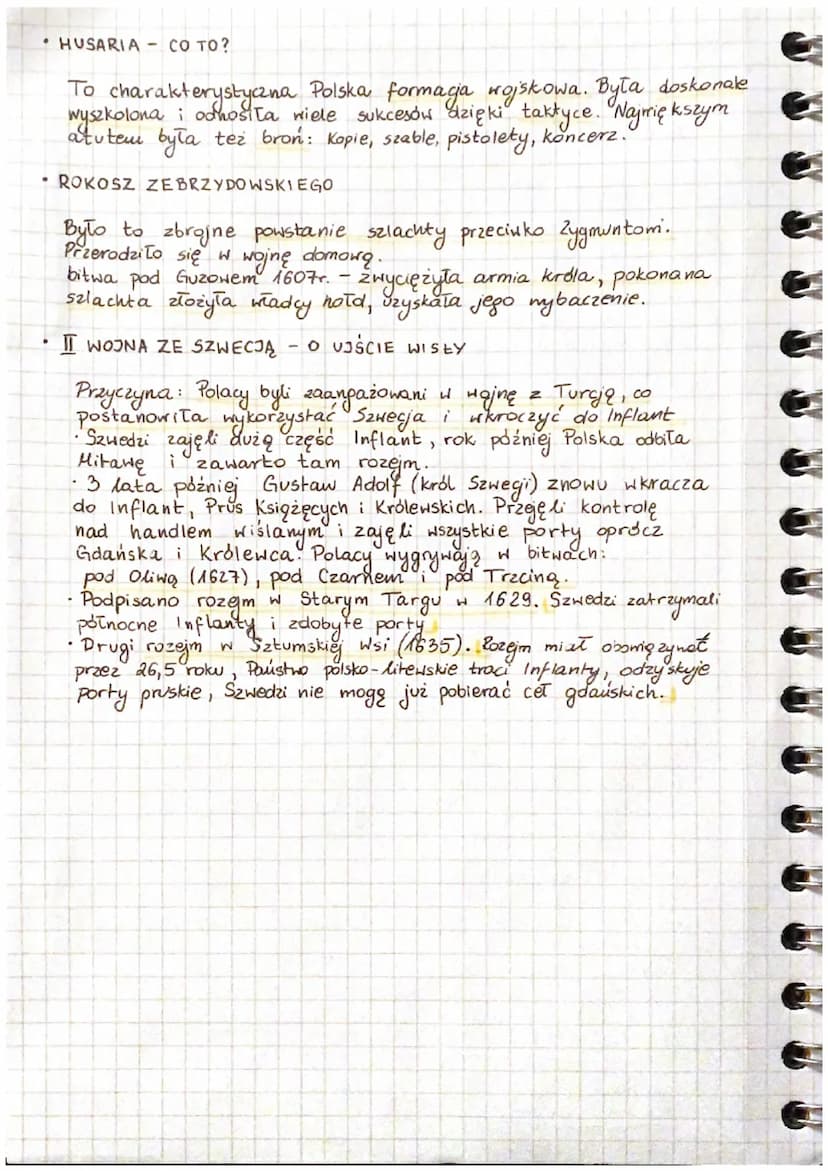 • HUSARIA - CO TO?
To charakterystyczna Polska formacja wojskowa. Była doskonale
wyszkolona i odnosiła wiele sukcesów dzięki taktyce. Największym
atutem była też broń: Kopie, szable, pistolety, koncerz.
• ROKOSZ ZEBRZYDOWSKIEGO
Było to zbrojne powstanie szlachty przeciwko Zygmuntowi.
Przerodziło się w wojnę domową.
bitwa pod Guzowem 1607r. - zwyciężyła armia króla, pokonana
szlachta złożyła władcy hołd, uzyskała jego wybaczenie.
• II WOJNA ZE SZWECJĄ - O UJŚCIE WISŁY
Przyczyna: Polacy byli zaangażowani w wojnę z Turcją, co
postanowiła wykorzystać Szwecja i wkroczyć do Inflant
· Szwedzi zajęli dużą część Inflant, rok później Polska odbiła
Mitawę i zawarto tam rozejm.
· 3 lata później Gustaw Adolf (król Szwecji) znowu wkracza
do Inflant, Prus Książęcych i Królewskich. Przejęli kontrolę
nad handlem wiślanym i zajęli wszystkie porty oprócz
Gdańska i Królewca. Polacy wygrywają w bitwach:
pod Oliwą (1627), pod Czarnem i pod Trzciną.
· Podpisano rozejm w Starym Targu w 1629. Szwedzi zatrzymali
północne Inflanty i zdobyte porty
· Drugi rozejm w Sztumskiej Wsi (1635). Rozejm miał obowiązywać
przez 26,5 roku, Państwo polsko-litewskie traci Inflanty, odzyskuje
porty pruskie, Szwedzi nie mogą już pobierać ceł gdańskich.